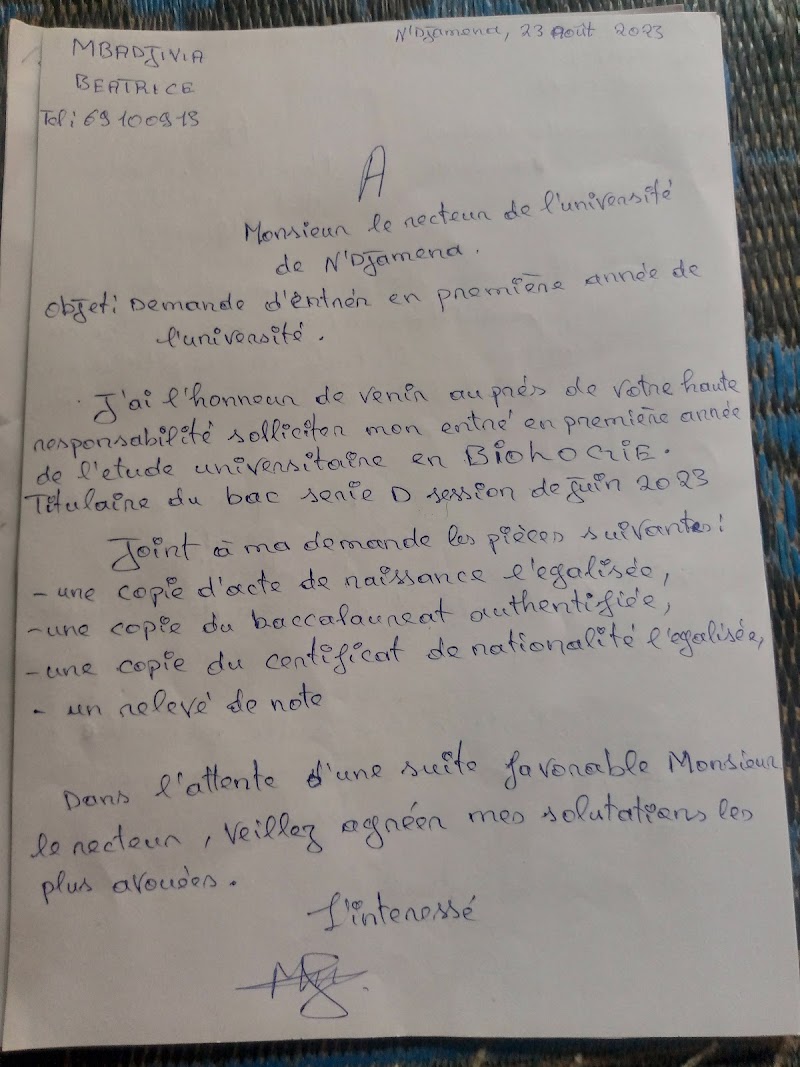 MBADJIVIA
N'Djamena, 23 Août 2023
BEATRICE
Tel: 69100919
A
Monsieur le recteur de l'université
de N'Djamena.
Objet: Demande d'éntrér en première année de
l'université.
J'ai l'honneur de venir au prés de votre haute
responsabilité solliciter mon entré en première année
de l'etude universitaire en
Titulaire du bac serie D session de juin 2023
Joint à ma demande les pièces suivantes:
- une copie d'acte de naissance l'egalisée,
- une copie du baccalaureat authentifiée,
- une copie du certificat de nationalité l'egalisée,
- un relevé de note
Dans l'attente d'une suite favorable Monsieur
le recteur, veillez agréér mes solutations les
plus avouées.
L'interessé